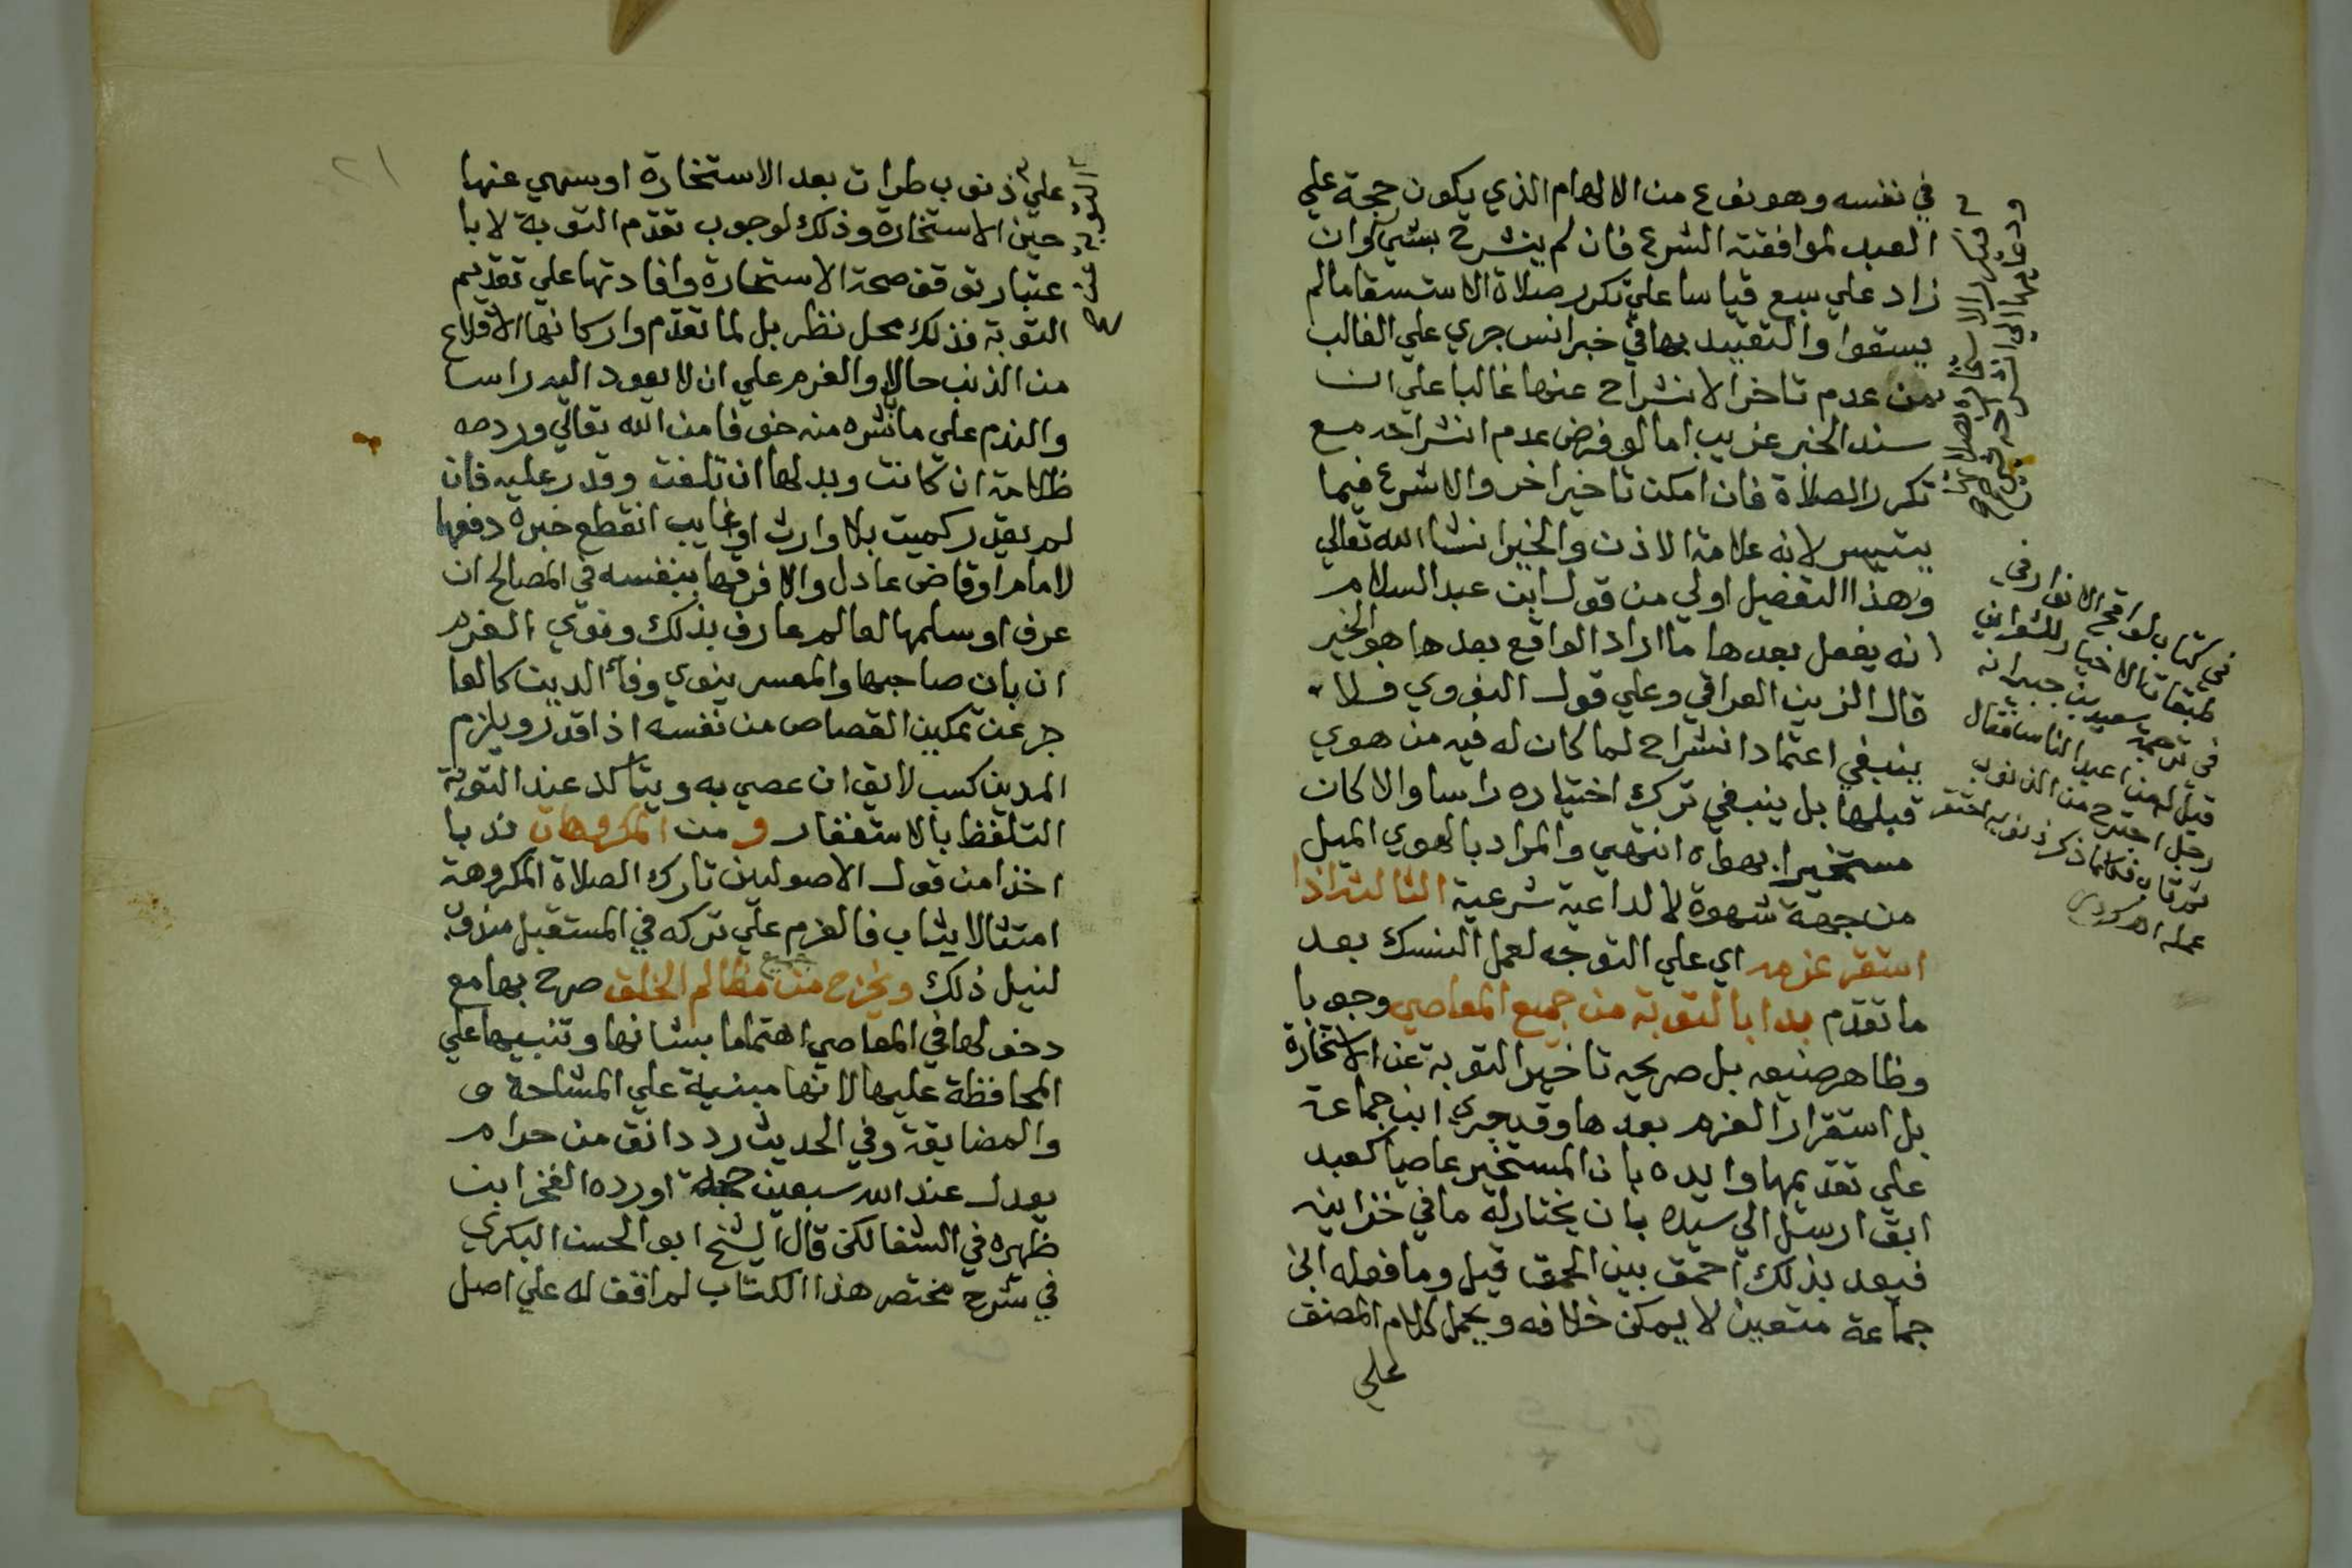 في نفسه وهو نوع من الالهام الذي يكون حجة علي
العبد لموافقته الشرع فان لم ينشرح بشي كرر وان
زاد علي سبع قياسا علي تكرر صلاة الاستسقا ما لم
يسقوا والتقييد بها في خبر انس جري علي الغالب
من عدم تاخر الانشراح عنها غالبا علي ان
سند الخبر غريب اما لو فرض عدم انشراحه مع
تكرر الصلاة فان امكن تاخير اخر والا شرع فيما
يتيسر لانه علامة الاذن والخير انشا الله تعالي
وهذا التفصيل اولي من قول ابن عبد السلام
انه يفعل بعدها ما اراد الواقع بعدها هو الخير
قال الزين العراقي وعلي قول النووي فلا
ينبغي اعتماد انشراح لما كان له فيه من هوي
قبلها بل ينبغي ترك اختياره راسا والا كان
مستخيرا بهواه انتهي والمراد بالهوي الميل
من جهة شهوة لا لداعية شرعية الثالثة اذا
استقر عزمه اي علي التوجه لعمل النسك بعد
ما تقدم بدا بالتوبة من جميع المعاصي وجوبا
وظاهر صنيعه بل صريحه تاخير التوبة عن الاستخارة
بل استقرار العزم بعدها وقد جري ابن جماعة
علي تقديمها وايده بان المستخير عاصيا كعبد
ابق ارسل الي سيده بان يختار له ما في خزاينه
فيعد بذلك احمق بين الحمق قيل وما فعله ابن
جماعة متعين لا يمكن خلافه ويحمل كلام المصنف
علي
في كتاب لواقح الانوار في
طبقات الاخيار للشعراني
في ترجمة سعيد بن جبير انه
قيل له من اعبد الناس فقال
رجل اجترح من الذنوب
ثم تاب فكلما ذكر ذنوبه احتقر
عمله اهـ
٢١
علي ذنوب طرات بعد الاستخارة او سهي عنها
حين الاستخارة وذلك لوجوب تقدم التوبة لا با
عتبار توقف صحة الاستخارة وافادتها علي تقديم
التوبة فذلك محل نظر بل لما تقدم واركانها الاقلاع
من الذنب حالا والعزم علي ان لا يعود اليه راسا
والندم علي مباشره منه خوفا من الله تعالي ورده
ظلامة ان كانت وبدلها ان تلفت وقدر عليه فان
لم يقدر كميت بلا وارث او غايب انقطع خبره دفعها
لامام او قاض عادل والا فرقها بنفسه في المصالح ان
عرف او سلمها لعالم عارف بذلك ونوي الغرم
ان بان صاحبها والمعسر ينوي وفا الدين كالعا
جز عن تمكين القصاص من نفسه اذا قدر ويلزم
المدين كسب لايق ان عصي به ويتاكد عند التوبة
التلفظ بالاستغفار و من المكروهات ندبا
اخذا من قول الاصوليين تارك الصلاة المكروهة
امتثالا يثاب فالعزم علي تركه في المستقبل
لنيل ذلك ويخرج من جميع مظالم الخلق صرح بها مع
دخولها في المعاصي اهتماما بشانها وتنبيها علي
المحافظة عليها لانها مبنية علي المشاحة و
والمضايقة وفي الحديث رد دانق من حرام
يعدل عند الله سبعين حجة اورده الفخر ابن
ظهيره في الشفا لكن قال الشيخ ابو الحسن البكري
في شرح مختصر هذا الكتاب لم اقف له علي اصل